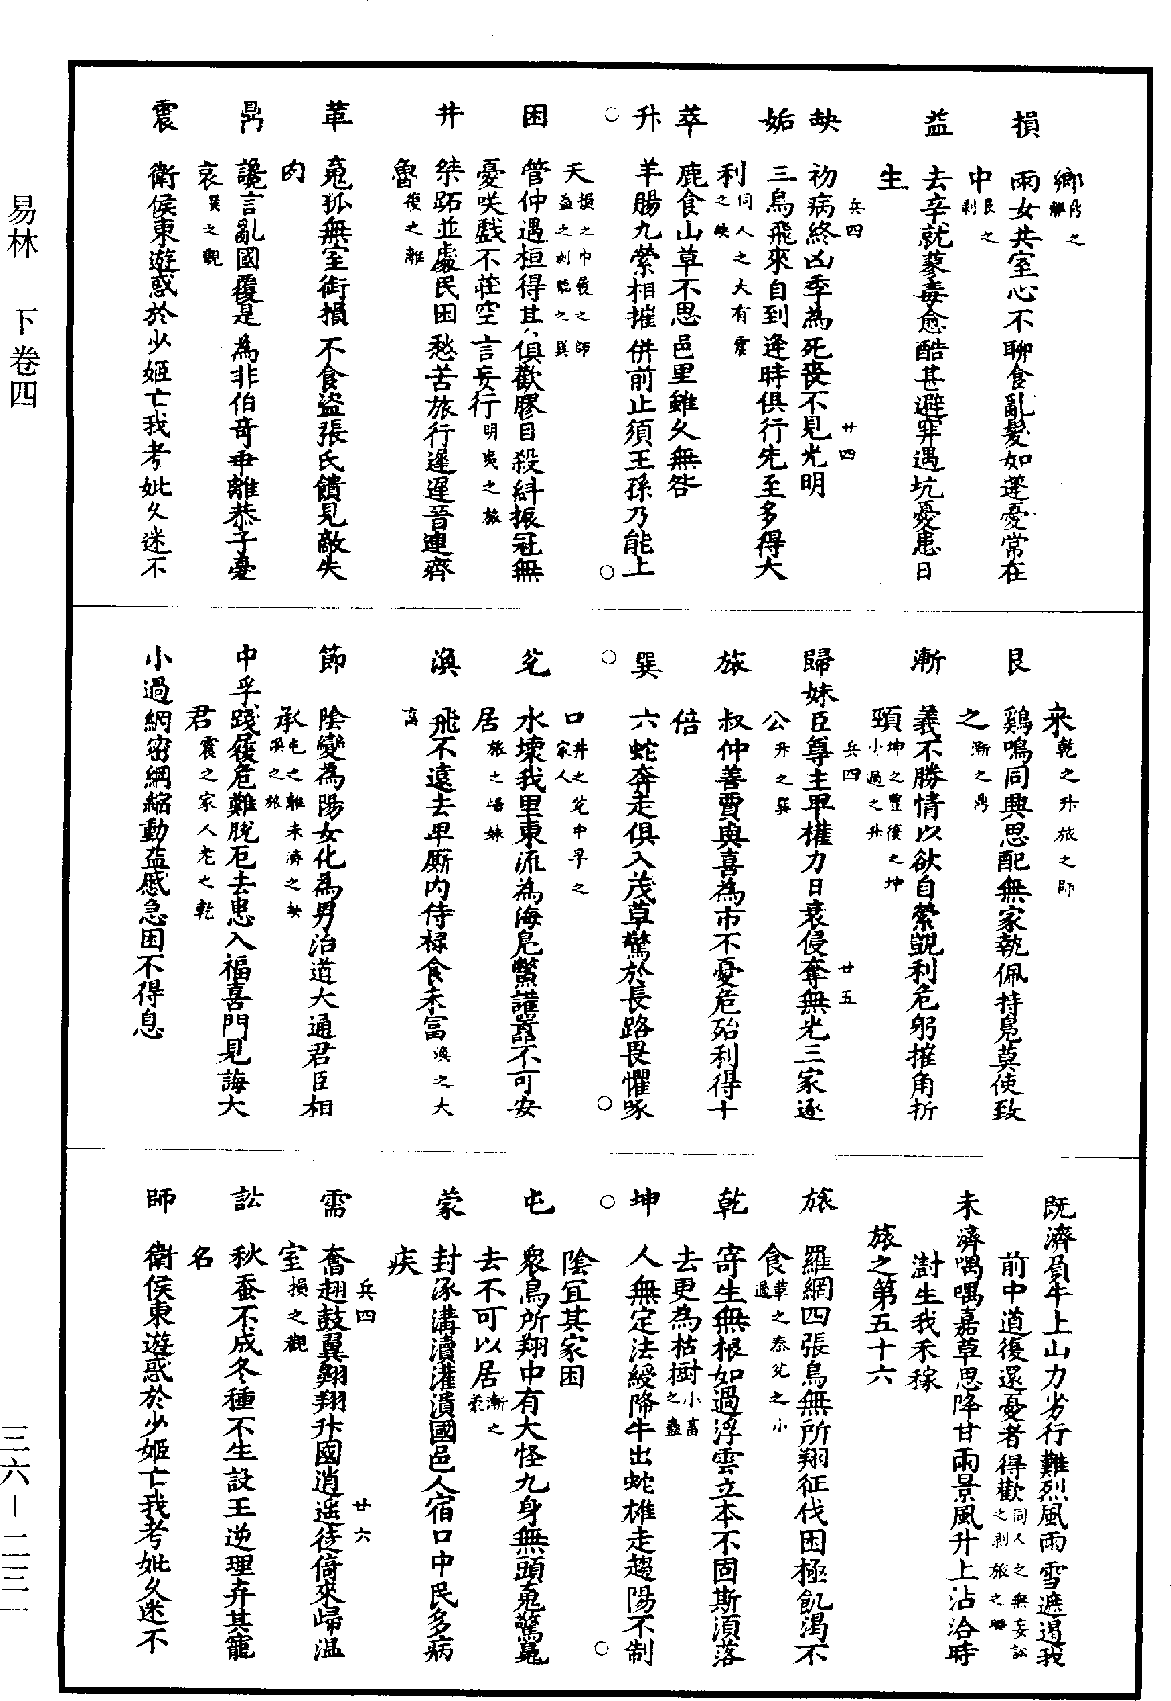 易林　下卷四
三六一二三一
鄉
損　兩女共室心不聊食亂髮如蓬憂常在
中艮之剥
益　去辛就蓼毒愈酷甚避穽遇坑憂患日
生
兵四　廿四
夬　初病終凶季為死喪不見光明
姤　三鳥飛來自到逢時俱行先至多得大
利同人之大有
萃　鹿食山草不思邑里雖久無咎
升　羊腸九縈相摧併前止須王孫乃能上
天
困　管仲遇桓得其俱歡膠目殺糾振冠無
憂咲戲不莊空言妄行明夷之旅
井　桀跖並處民困愁苦旅行遲遲晉連齊
魯復之離
革　狐無室銜損不食盜張氏饋見敵失
肉
鼎　讒言亂國覆是為非伯奇乖離恭子憂
哀巽之觀
震　衛侯東遊惑於少姬亡我考妣久迷不
來乾之升旅之師
艮　鷄鳴同興思配無家執佩持鳧莫使致
之漸之鼎
漸　義不勝情以欲自縈覬利危躬摧角折
頸坤之豐復之坤小過之升
兵四　廿五
歸妹　臣尊主卑權力日衰侵奪無光三家逐
公升之巽
旅　叔仲善賈與喜為市不憂危殆利得十
倍
巽　六蛇奔走俱入茂草驚於長路畏懼啄
口井之兌中孚之家人
兌　水壞我里東流為海鳧鱉讙嚻不可安
居旅之歸妹
渙　飛不遠去卑廝內侍祿食未富渙之大
節　陰變為陽女化為男治道大通君臣相
承屯之離未濟之夬
中孚　踐履危難脫厄去患入福喜門見誨大
君震之家人
小過　網密網縮動益蹙急困不得息
既濟　負牛上山力劣行難烈風雨雪遮遏我
前中道復還憂者得歡同人之無妄
未濟　喁喁嘉草思降甘雨景風升上沾洽時
澍生我禾稼
旅之第五十六
旅　羅網四張鳥無所翔征伐困極飢渴不
食革之泰兌之小過
乾　寄生無根如過浮雲立本不固斯須落
去更為枯樹小畜之蠱
坤　人無定法綬降牛出蛇雄走趨陽不制
陰宜其家困
屯　衆鳥所翔中有大怪九身無頭䰟驚䰟
去不可以居漸之
蒙　封豕溝瀆灌潰國邑人宿口中民多病
疾
兵四　廿六
需　奮翅鼓翼翱翔升國逍遙徙倚來歸溫
室損之觀
訟　秋蚕不成冬種不生設王逆理弃其寵
名
師　衛侯東遊惑於少姬亡我考妣久迷不